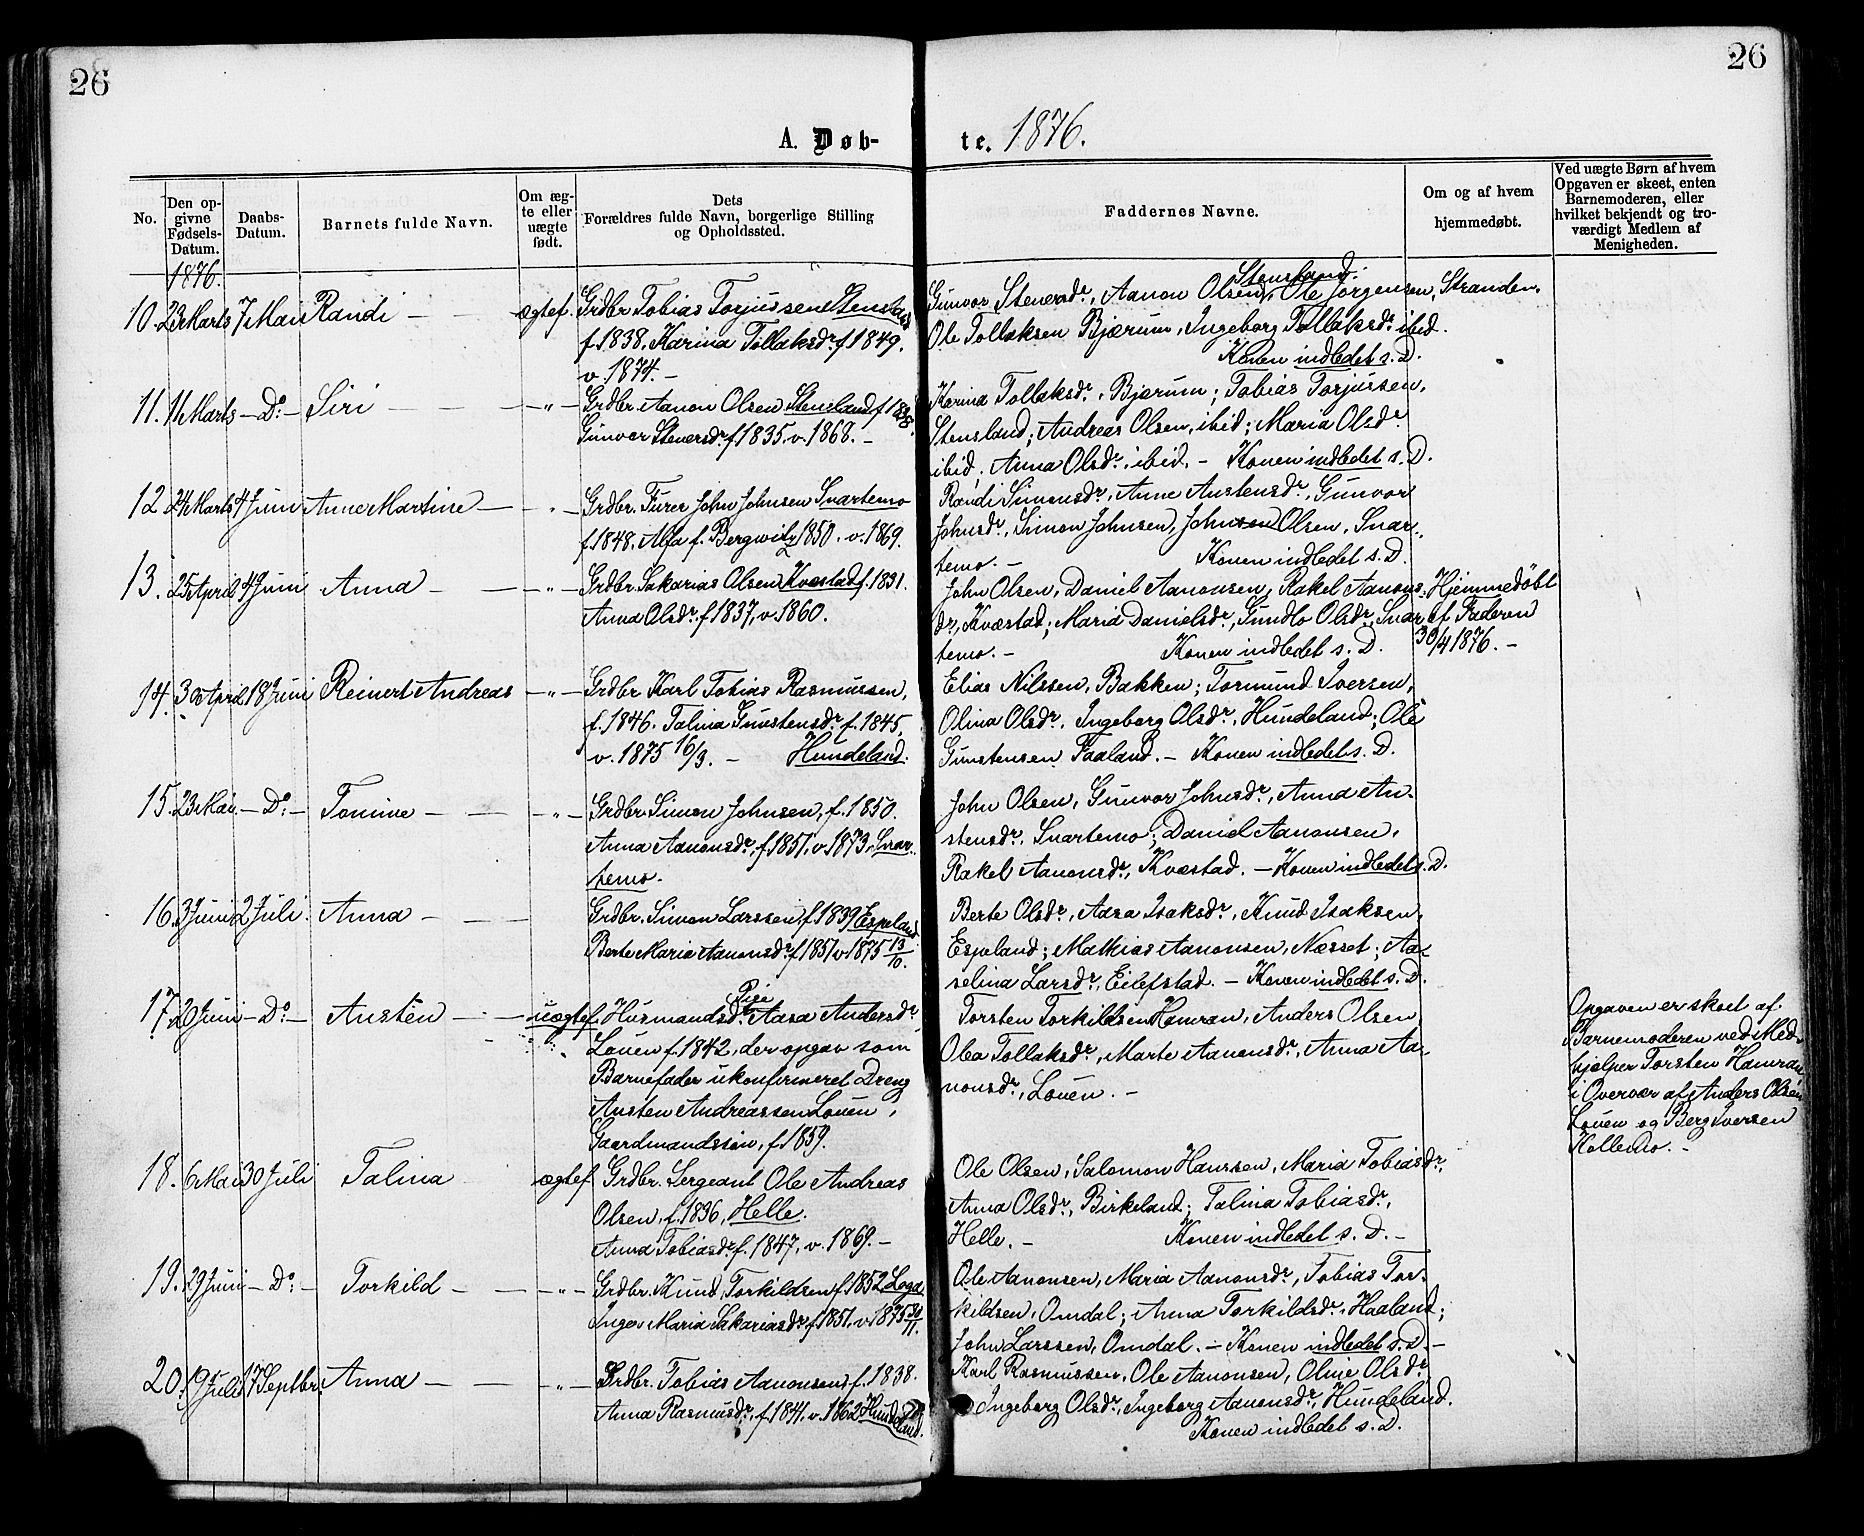 26
26
A. Døb-
te. 1876.
No.
Den op-
givne
Fødsels-
Datum.
Daabs-
Datum.
Barnets fulde Navn.
Om æg-
te eller
uægte
født.
Dets
Forældres fulde Navn, borgerlige Stilling
og Opholdssted.
Faddernes Navne.
Om og af hvem
hjemmedøbt.
Ved uægte Børn af hvem
Opgaven er skeet, enten
Barnemoderen, eller
hvilket bekjendt og tro-
værdigt Medlem af
Menigheden.
1876.
10. 23 Marts 7 Mai Randi — ægtef. Grdbr. Tobias Torjussen Stensland
f. 1838, Karina Tollaksdr. f. 1849.
v. 1874. —
Stensland.
Gunvor Stenersdr., Aanon Olsen, Ole Jørgensen, Stranden.
Ole Tollaksen Bjærum, Ingeborg Tollaksdr. ibid.
Konen indledet s. D.
11. 11 Marts — Do — Siri — — „ — Grdbr. Aanon Olsen Stensland f. 1838.
Gunvor Stenersdr. f. 1835. v. 1868. —
Karina Tollaksdr., Bjærum; Tobias Torjussen,
Stensland; Andreas Olsen, ibid; Maria Olsdr.
ibid. Anna Olsdr. ibid. — Konen indledet s. D.
12 24 Marts 4 Juni Anne Martine — — „ — Grdbr. Furer John Johnsen Snartemo
f. 1848. Alfa f. Bergwitz 1850. v. 1869.
Randi Simonsdr., Anne Austensdr., Gunvor
Johnsdr., Simon Johnsen, Johnsen Olsen, Snar-
temo. — Konen indledet s. D.
13. 25 April 4 Juni Anna — — „ — Grdbr. Sakarias Olsen Kvæstad f. 1831.
Anna Olsdr. f. 1837, v. 1860.
John Olsen, Daniel Aanonsen, Rakel Aanons-
dr., Kvæstad; Maria Danielsdr., Gundlo Olsdr., Snar-
temo. — Konen indledet s. D.
Hjemmedøbt
af Faderen
30/4 1876. —
14. 30 April 18 Juni Reinert Andreas — „ — Grdbr. Karl Tobias Rasmussen,
f. 1846. Talina Gunstensdr. f. 1845,
v. 1875 16/3. — Hundeland.
Elias Nilssen, Bakken; Tormund Iversen,
Olina Olsdr., Ingeborg Olsdr., Hundeland; Ole
Gunstensen Faaland. — Konen indledet s. D.
15. 23 Mai. — Do — Tomine — — „ — Grdbr. Simon Johnsen, f. 1850.
Anna Aanonsdr., f. 1851, v. 1873, Snar-
temo.
John Olsen, Gunvor Johnsdr., Anna Au-
stensdr. Snartemo; Daniel Aanonsen,
Rakel Aanonsdr., Kvæstad. — Konen indledet s. D.
16. 3 Juni 2 Juli. Anna — — „ — Grdbr. Simon Larssen, f. 1839 Espeland
Berte Maria Aanonsdr. f. 1851 v. 1875 13/10.
Berte Olsdr., Aasa Isaksdr., Knud Isaksen,
Espeland; Mathias Aanonsen, Næsset; Aa-
selina Larsdr., Eilefstad. — Konen indledet s. D.
17. 20 Juni — Do — Austen — uægtef. Pige
Husmandsdr. Aasa Andersdr.
Louen f. 1842, der opgav som
Barnefader ukonfirmeret Dreng
Austen Andreassen Louen,
Gaardmandssøn, f. 1859.
Torsten Torkildsen Homran, Anders Olsen,
Olea Tollaksdr., Marte Aanonsdr., Anna Aa-
nonsdr., Louen. —
Opgaven er skeet af
Barnemoderen ved Med-
hjælper Torsten Hamran
i Overvær af Anders Olsen
Louen og Berg Iversen
Kollemo. —
18. 6 Mai 30 Juli Talina ægtef. Grdbr. Sergeant Ole Andreas
Olsen, f. 1836, Helle.
Anna Tobiasdr. f. 1847, v. 1869. —
Ole Olsen, Salomon Hanssen, Maria Tobiasdr.,
Anna Olsdr., Birkeland; Talina Tobiasdr.,
Helle. — Konen indledet s. D. —
19. 29 Juni — Do — Torkild — — „ — Grdbr. Knud Torkildsen f. 1852 Loga
Inger Maria Sakariasdr. f. 1851, v. 1875 30/11.
Ole Aanonsen, Maria Aanonsdr., Tobias Tor-
kildsen, Omdal; Anna Torkildsdr., Haaland;
John Larssen, Omdal. — Konen indledet s. D. —
20. 19 Juli 17 Septbr. Anna — — „ — Grdbr. Tobias Aanonsen f. 1838.
Anna Rasmusdr., f. 1841. v. 1862 Hundeland.
Karl Rasmussen, Ole Aanonsen, Oline Olsdr.
Ingeborg Olsdr., Ingeborg Aanonsdr., Hundeland.
Konen indledet s. D.